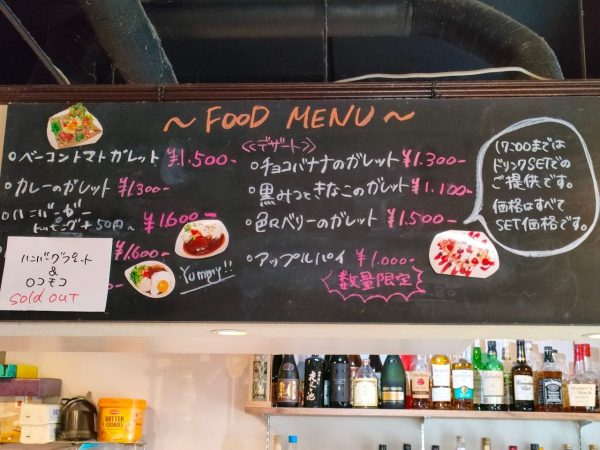 ~ FOOD MENU ~
ベーコントマトガレット ¥1.500-
カレーのガレット ¥1.300-
ハンバーガー
トッピング+50円~ ¥1.600-
¥1.600-
ハンバーグプレート
&
ロコモコ
sold out
Yummy!!
<<デザート>>
チョコバナナのガレット ¥1.300-
黒みつときなこのガレット ¥1.100-
色々ベリーのガレット ¥1.500-
アップルパイ ¥1.000-
数量限定
17:00までは
ドリンクSETでの
ご提供です。
価格はすべて
SET価格です。
BUTTER
COOKIES